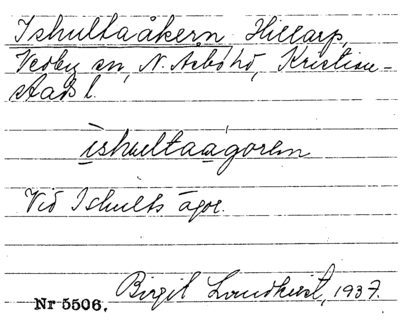 Ishultaåkern, Hillarp,
Vedby sn, N. Åsbo hd, Kristian-
stads l.
ishultaagoren
Vid Ishults ägor.
Birgit Lundkvist, 1937.
Nr 5506.